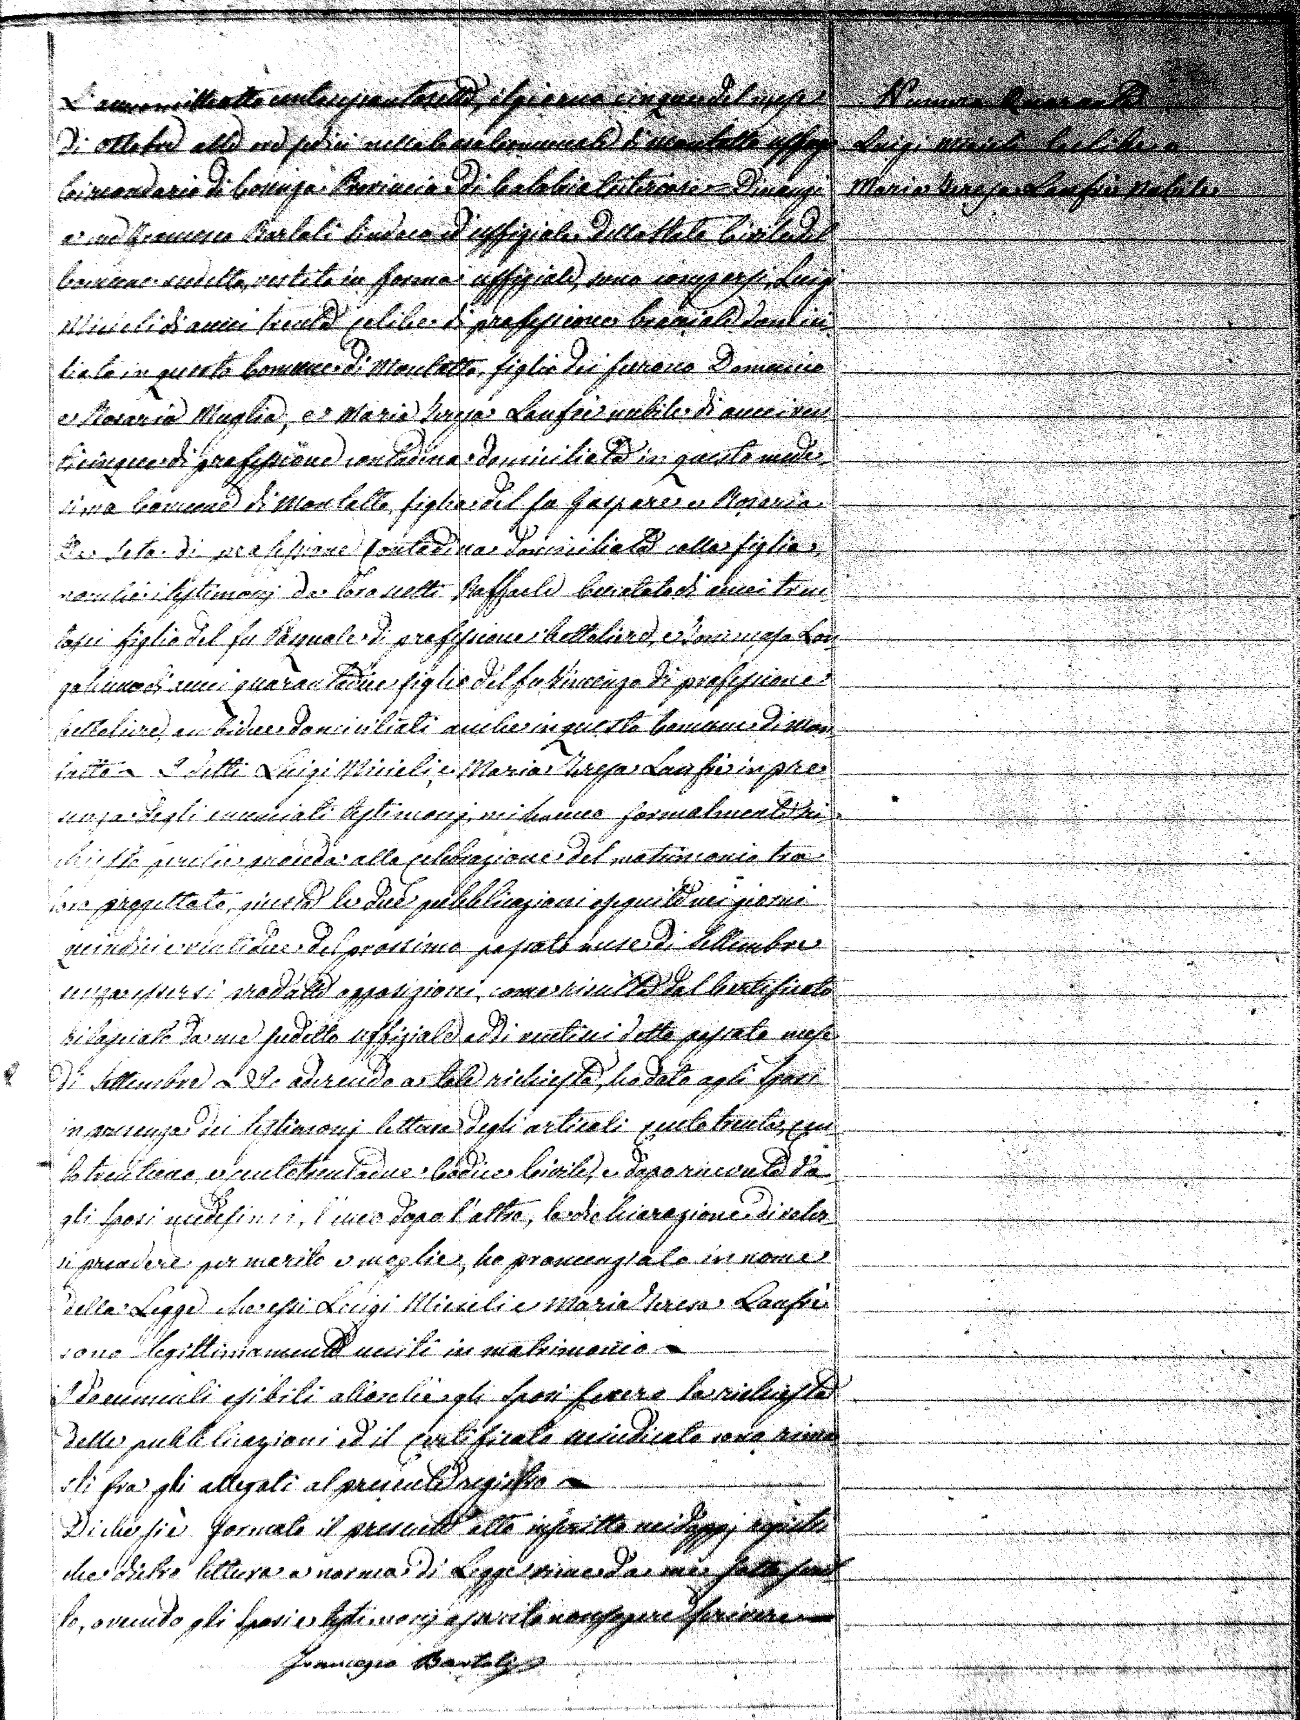 L'anno mille otto cento sessantasette, il giorno cinque del mese
di Ottobre alle ore sedici nella Casa Comunale di Montalto Uffugo
Circondario di Cosenza Provincia di Calabria Citeriore = Dinanzi
a me Francesco Bartoli Sindaco ed uffiziale dello Stato Civile del
Comune sudetto, vestito in forma uffiziale, sono comparsi, Luigi
Miceli di anni trenta celibe di professione bracciale domici
liato in questo Comune di Montalto, figlio dei furono Domenico
e Rosaria Muglia, e Maria Teresa Lanfrè nubile di anni ven
ticinque di professione contadina domiciliata in questo mede
simo Comune di Montalto, figlia del fu Gaspare e Rosaria
De Seta di professione contadina domiciliata colla figlia,
nonchè i testimonj da loro scelti Raffaele di anni tren
tasei figlio del fu Pasquale di professione bottaliere, e Tommaso Lon
gobucco di anni quarantadue figlio del fu Vincenzo di professione
bottaliere, ambidue domiciliati anche in questo Comune di Mon
talto = I detti Luigi Miceli, e Maria Teresa Lanfrè in pre
senza degli enunciati testimonj, mi hanno formalmente ri
chiesto perchè proceda alla celebrazione del matrimonio tra
loro progettato, giusta le due pubblicazioni eseguite nei giorni
quindici e ventidue del prossimo passato mese di Settembre
senza essersi prodotte opposizioni, come risulta dal Certificato
rilasciato da me sudetto uffiziale addi detto passato mese
di Settembre = Io aderendo a tale richiesta, ho dato agli sposi
in presenza dei testimonj lettura degli articoli cento trenta, cen
to trentuno e cento trentadue Codice Civile, e dopo ricevuta da
gli sposi medesimi, l'uno dopo l'altro, la dichiarazione di voler
si prendere per marito e moglie, ho pronunziato in nome
della Legge che essi Luigi Miceli e Maria Teresa Lanfrè
sono legittimamente uniti in matrimonio =
I documenti esibiti allorchè gli sposi fecero la richiesta
delle pubblicazioni ed il certificato sono rima
sti fra gli allegati al presente registro =
Di che si è formato il presente atto inscritto nei doppj registri
che dietro lettura a norma di Legge viene da me sottoscrit
to, avendo gli sposi e testimonj asserito non sapere scrivere
Francesco Bartoli
Numero Quaranta
Luigi Miceli Celibe e
Maria Teresa Lanfrè Nubile